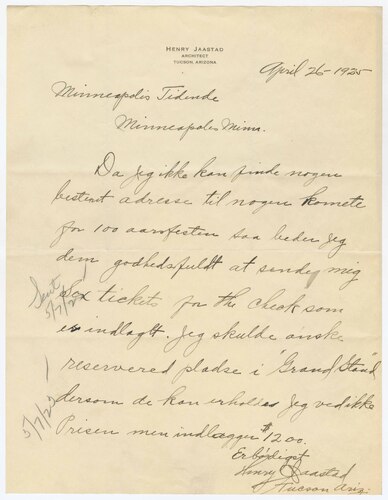 HENRY JAASTAD
ARCHITECT
TUCSON, ARIZONA
April 26-1925
Minneapolis Tidende
Minneapolis Minn.
Da jeg ikke kan finde nogen
bestemt adresse til nogen komete
for 100 aarsfesten saa beder jeg
dem godhedsfuldt at sende mig
sex tickets for the check som
er indlagt. Jeg skulde ønske
reservered pladse i "Grand Stand"
dersom de kan erholdes jeg ved ikke
Prisen men indlægger $12.00.
Erbødigst
Henry Jaastad
Tucson Ariz.
Sent